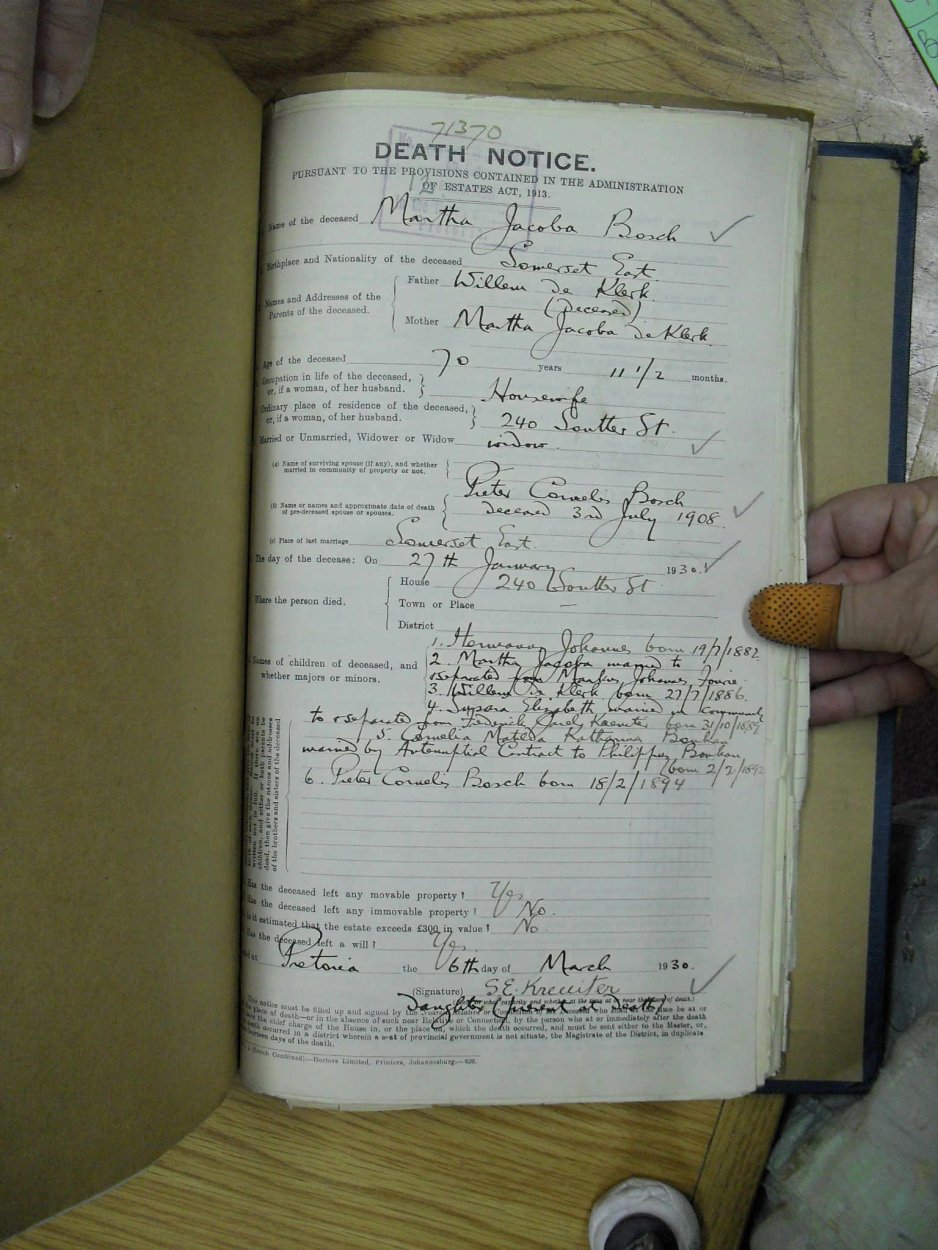 71370
DEATH NOTICE.
PURSUANT TO THE PROVISIONS CONTAINED IN THE ADMINISTRATION
OF ESTATES ACT, 1913.
Name of the deceased Martha Jacoba Bosch
Birthplace and Nationality of the deceased Somerset East
Names and Addresses of the Parents of the deceased.
Father Willem De Klerk
(deceased)
Mother Martha Jacoba De Klerk
Age of the deceased 70 years 11 1/2 months.
Occupation in life of the deceased, or, if a woman, of her husband. Housewife
Ordinary place of residence of the deceased, or, if a woman, of her husband. 240 Soutter St.
Married or Unmarried, Widower or Widow widow
(a) Name of surviving spouse (if any), and whether married in community of property or not.
(b) Name or names and approximate date of death of pre-deceased spouse or spouses. Pieter Cornelis Bosch
deceased 3rd July 1908.
(c) Place of last marriage Somerset East
The day of the decease: On 27th January 1930.
Where the person died.
House 240 Soutter St
Town or Place —
District
Names of children of deceased, and whether majors or minors.
1. Hermanus Johannes born 19/7/1882
2. Martha Jacoba married to
separated from Johannes Fourie
3. Willem De Klerk born 27/7/1886.
4. Susara Elizabeth married in community
to & separated from Frederick Karel Kreuiter born 31/10/1889
5. Cornelia Matilda Katharina
married by Antenuptial Contract to Philippus
(born 2/2/1892
6. Pieter Cornelis Bosch born 18/2/1894
children, and either or both parents be
dead, then give the names and addresses
of the brothers and sisters of the deceased
Has the deceased left any movable property? Yes
Has the deceased left any immovable property? No.
Is it estimated that the estate exceeds £300 in value? No.
Has the deceased left a will? Yes.
Pretoria the 6th day of March 1930.
(Signature) S.E. Kreuiter
Daughter present at death
This notice must be filled up and signed by the
place of death—or in the absence of such near Relative or Connection, by the person who at or immediately after the death
the chief charge of the House in, or the place on, which the death occurred, and must be sent either to the Master, or,
death occurred in a district wherein a seat of provincial government is not situate, the Magistrate of the District, in duplicate
days of the death.
(Dutch Combined).—Hortors Limited, Printers, Johannesburg.—